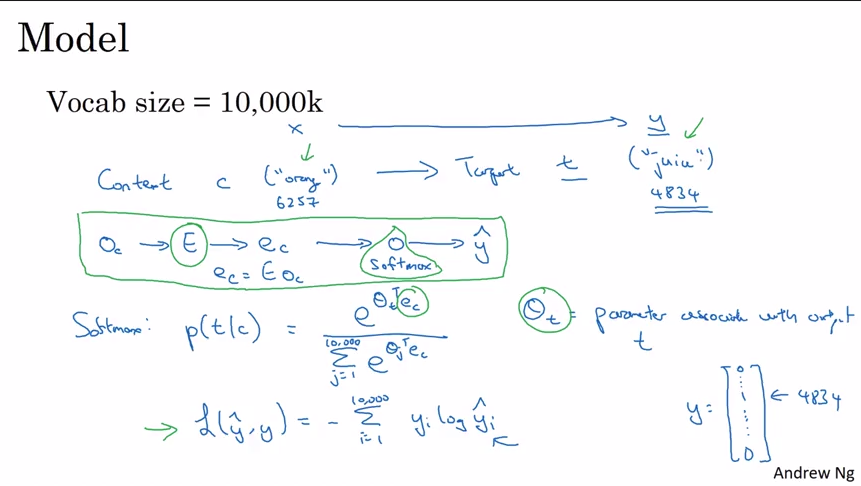 Model
Vocab size = 10,000k
x → y
Context c ("orange") → Target t ("juice")
6257 4834
O_c → E → e_c → O → ŷ
softmax
e_c = E O_c
Softmax: p(t|c) = e^{θ_t^T e_c} / Σ_{j=1}^{10,000} e^{θ_j^T e_c}
θ_t = parameter associated with output t
→ ℒ(ŷ, y) = - Σ_{i=1}^{10,000} y_i log ŷ_i
y = [0 ⋮ 1 ⋮ 0] ← 4834
Andrew Ng